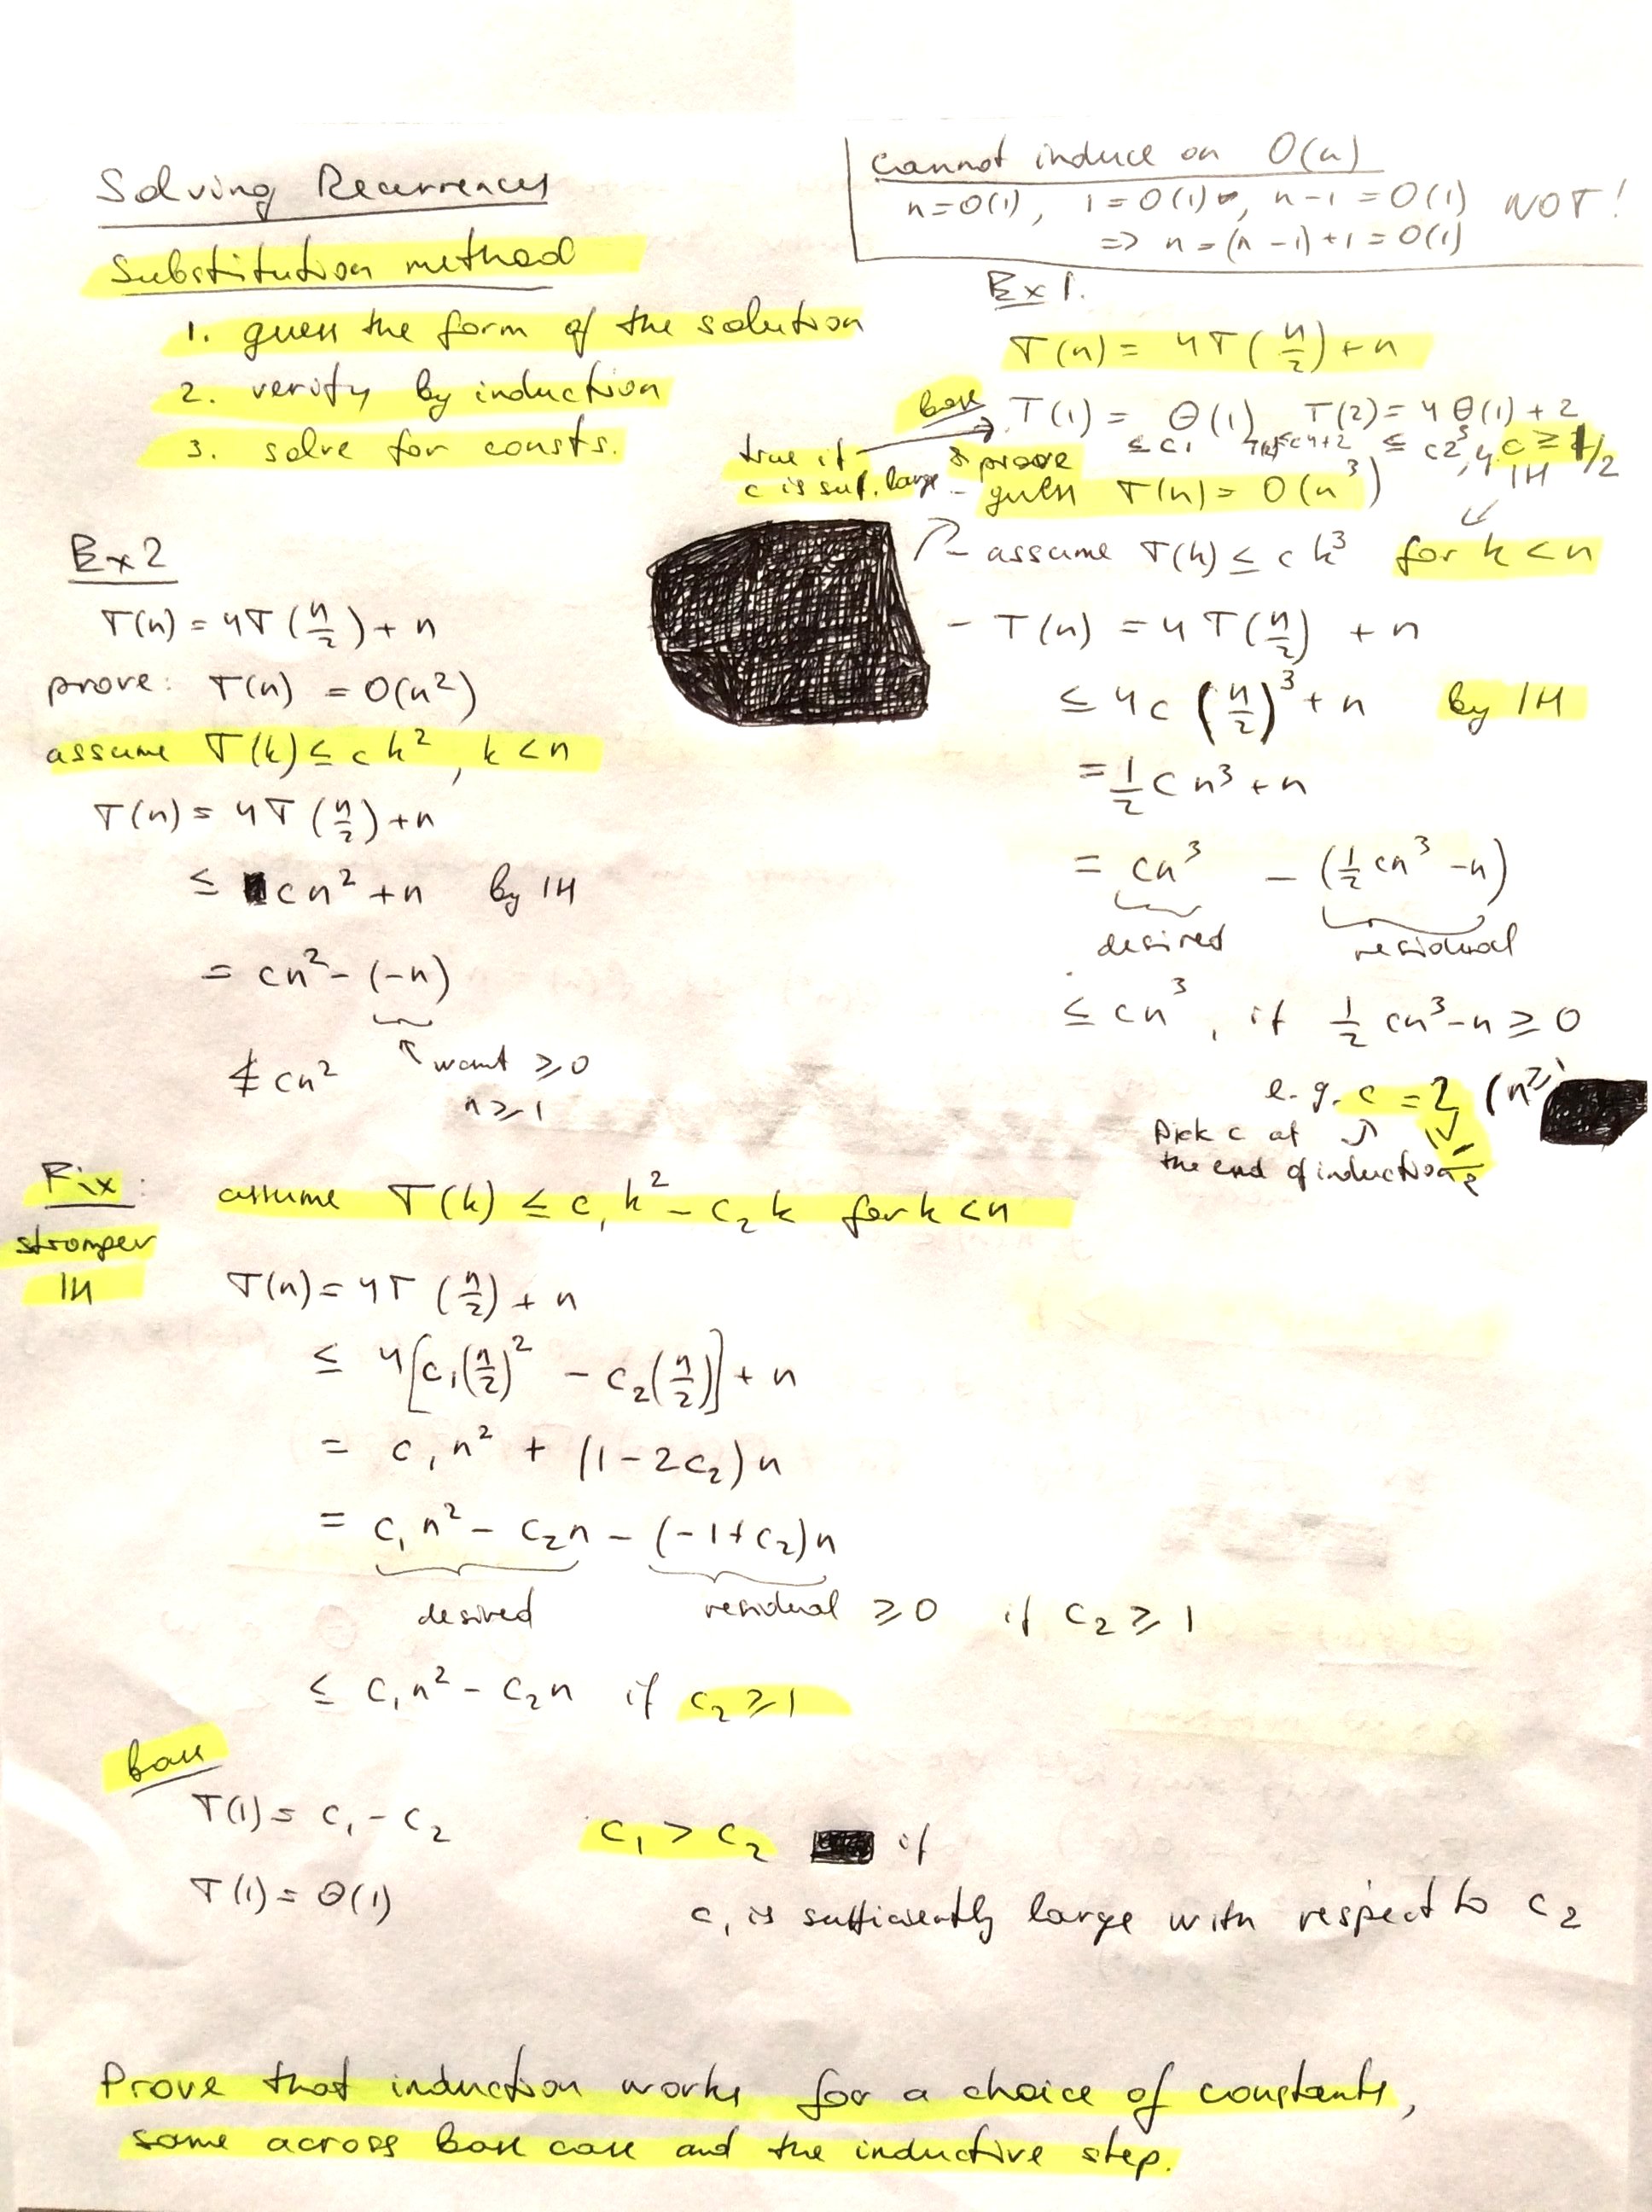 Solving Recurrences
Substitution method
1. guess the form of the solution
2. verify by induction
3. solve for consts.
cannot induce on O(n)
n=O(1), 1=O(1), n-1=O(1) NOT!
=> n=(n-1)+1=O(1)
Ex1.
T(n) = 4T(n/2)+n
base T(1) = Θ(1) T(2)=4Θ(1)+2
≤ c1 ≤ c2³, c ≥ 1/2
true if
c is suf. large
& prove
guess T(n) = O(n³)
IH
- assume T(k) ≤ ck³ for k<n
- T(n) = 4T(n/2) + n
≤ 4c(n/2)³ + n by IH
= 1/2 cn³ + n
= cn³ - (1/2 cn³ - n)
desired residual
≤ cn³, if 1/2 cn³-n ≥ 0
e.g. c = 2 (n≥1
Pick c at
the end of induction
Ex2
T(n) = 4T(n/2) + n
prove: T(n) = O(n²)
assume T(k) ≤ ck², k<n
T(n) = 4T(n/2)+n
≤ cn²+n by IH
= cn² - (-n)
≰ cn² want ≥0
n≥1
Fix:
stronger
IH
assume T(k) ≤ c₁k² - c₂k for k<n
T(n) = 4T(n/2) + n
≤ 4[c₁(n/2)² - c₂(n/2)] + n
= c₁n² + (1-2c₂)n
= c₁n² - c₂n - (-1+c₂)n
desired residual ≥0 if c₂≥1
≤ c₁n² - c₂n if c₂≥1
base
T(1) = c₁ - c₂ c₁ > c₂ if
T(1) = Θ(1)
c₁ is sufficiently large with respect to c₂
Prove that induction works for a choice of constants,
same across base case and the inductive step.